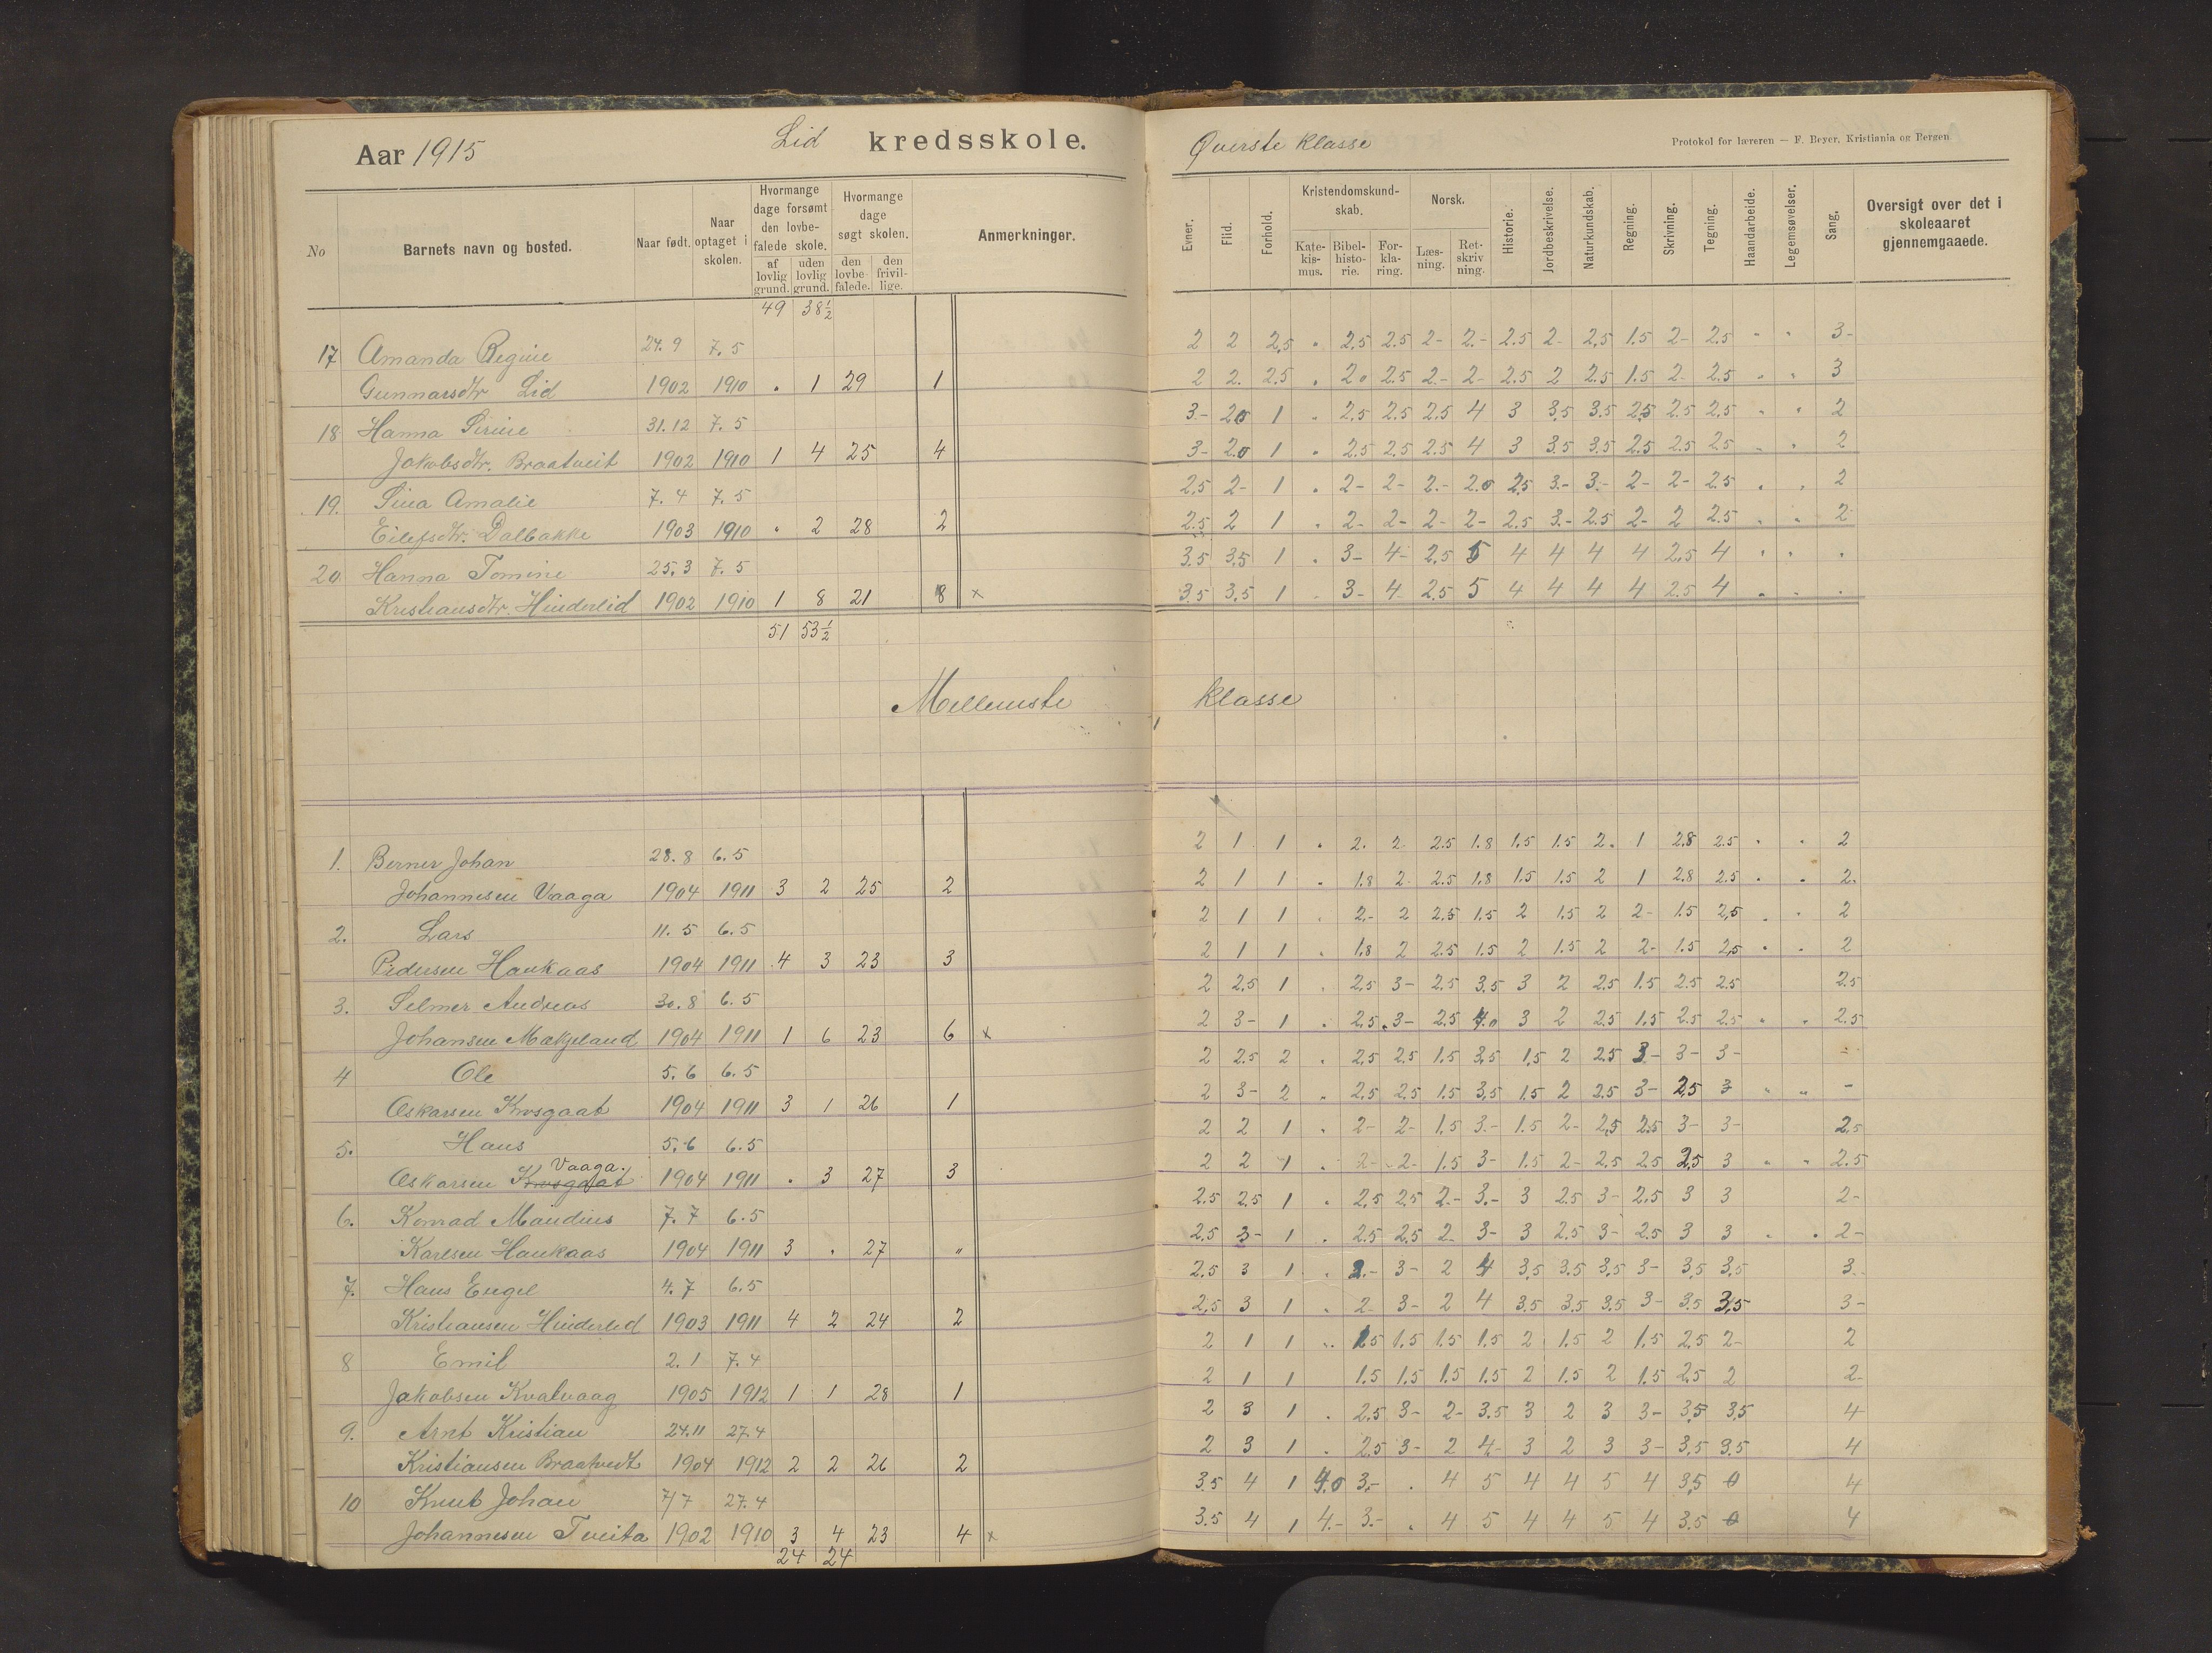 Aar 1915 Lid kredsskole. Øverste klasse Protokol for læreren — F. Beyer, Kristiania og Bergen
No Barnets navn og bosted. Naar født. Naar optaget i skolen. Hvormange dage forsømt den lovbefalede skole. af lovlig grund. uden lovlig grund. Hvormange dage søgt skolen. den lovbefalede. den frivillige. Anmerkninger.
Evner. Flid. Forhold. Kristendomskundskab. Katekismus. Bibelhistorie. Forklaring. Norsk. Læsning. Retskrivning. Historie. Jordbeskrivelse. Naturkundskab. Regning. Skrivning. Tegning. Haandarbeide. Legemsøvelser. Sang. Oversigt over det i skoleaaret gjennemgaaede.
49 38½
17 Amanda Regine 24.9 7.5 2 2 2,5 " 2,5 2.5 2- 2.- 2.5 2- 2,5 1.5 2- 2.5 " " 3-
Gunnarsdtr Lid 1902 1910 " 1 29 1 2 2. 2.5 " 2.0 2.5 2.- 2- 2.5 2 2.5 1.5 2- 2.5 " " 3
18 Hanna Serine 31.12 7.5 3- 2.0 1 " 2.5 2.5 2.5 4 3 3.5 3.5 2.5 2.5 2.5 " " 2
Jakobsdtr. Braatveit 1902 1910 1 4 25 4 3- 2.0 1 " 2.5 2.5 2.5 4 3 3.5 3.5 2.5 2.5 2.5 " " 2
19. Sina Amalie 7.4 7.5 2.5 2- 1 " 2- 2- 2.- 2.0 2.5 3.- 3.- 2- 2- 2.5 " " 2
Eilefsdtr. Dalbakke 1903 1910 " 2 28 2 2.5 2 1 " 2- 2- 2- 2- 2.5 3.- 2.5 2- 2 2.5 " " 2
20 Hanna Tomine 25.3 7.5 3.5 3.5 1 " 3- 4- 2.5 5 4 4 4 4 2.5 4 " " "
Kristiansdtr. Hinderlid 1902 1910 1 8 21 8 x 3.5 3.5 1 " 3- 4 2.5 5 4 4 4 4 2.5 4 " " "
51 53½
Mellemste klasse
1. Berner Johan 28.8 6.5 2 1 1 " 2. 2 2.5 1.8 1.5 1.5 2. 1 2.8 2.5 " " 2
Johannesen Vaaga 1904 1911 3 2 25 2 2 1 1 " 1.8 2 2.5 1.8 1.5 1.5 2 1 2.8 2.5 " " 2.
2. Lars 11.5 6.5 2 1 1 " 2.- 2 2.5 1.5 2 1.5 2 2- 1.5 2,5 " " 2
Pedersen Haukaas 1904 1911 4 3 23 3 2 1 1 " 1.8 2 2.5 1.5 2 1.5 2 2- 1.5 2,5 " " 2
3. Selmer Andreas 30.8 6.5 2 2,5 1 " 2,5 3- 2.5 3.5 3 2 2.5 1.5 2.5 2.5 2.5
Johansen Mækjeland 1904 1911 1 6 23 6 x 2 3- 1 " 2,5 3- 2.5 4.0 3 2 2.5 1.5 2.5 2.5 " " 2.5
4 Ole 5.6 6.5 2 2.5 2 " 2,5 2.5 1.5 3,5 1,5 2 2.5 3- 3- 3- -
Oskarsen Krosgaat 1904 1911 3 1 26 1 2 3- 2 " 2,5 2,5 1.5 3,5 1.5 2 2.5 3- 2,5 3 " " -
5. Hans 5.6 6.5 2 2 1 " 2- 2- 1,5 3.- 1.5 2- 2,5 2.5 3- 3- 2,5
Vaaga.
Oskarsen Krosgaat 1904 1911 " 3 27 3 2 2 1 " 2- 2- 1.5 3- 1.5 2- 2.5 2.5 2,5 3 " " 2.5
6. Konrad Maudius 7.7 6.5 2.5 2.5 1 " 2,5 2,5 2.- 3.- 3 2.5 3- 2.5 3 3 2-
Karlsen Haukaas 1904 1911 3 " 27 " 2.5 3- 1 " 2.5 2.5 2 3- 3 2.5 3- 2.5 3 3 " " 2-
7. Hans Engel 4.7 6.5 2.5 3 1 " 2.- 3- 2 4 3,5 3.5 3,5 3- 3,5 3,5 3-
Kristiansen Hinderlid 1903 1911 4 2 24 2 2,5 3 1 " 2- 3- 2 4 3.5 3.5 3.5 3- 3.5 3,5 3-
8 Emil 2.1 7.4 2 1 1 " 1.5 1.5 1.5 1.5 2 1.5 2 1.5 2,5 2- 2
Jakobsen Kvalvaag 1905 1912 1 1 28 1 2 1 1 1.5 1.5 1.5 1.5 2 1.5 2 1.5 2,5 2 2-
9. Arnt Kristian 24.11 27.4 2 3 1 " 2,5 3- 2- 3.5 3 2 3 3- 3,5 3,5 4
Kristiansen Braatvedt 1904 1912 2 2 26 2 2 3 1 " 2,5 3- 2 4- 3 2 3 3- 3,5 3.5 4
10 Knut Johan 7/7 27.4 3.5 4 1 4.0 3,- " 4 5 4 4 5 4 3,5 0 4
Johannesen Tveita 1902 1910 3 4 23 4 x 3.5 4 1 4.- 3.- " 4 5 4 4 5 4 3.5 0 4
24 24